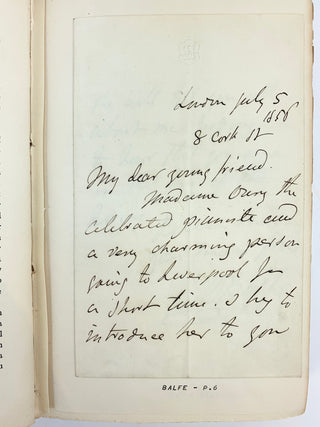 London July 5
1856
8 Cork St
My dear young friend.
Madame Oury the
celebrated pianiste and
a very charming person
going to Liverpool for
a short time. I beg to
introduce her to you
BALFE - P.6